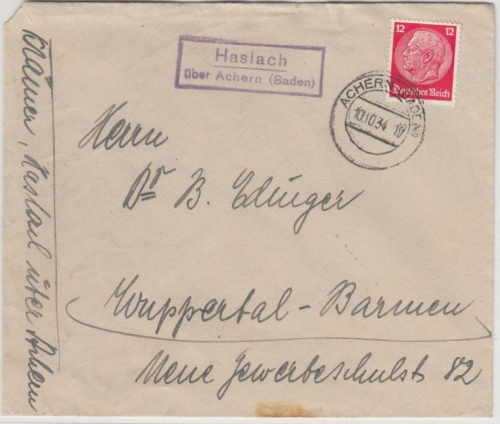 Haslach
über Achern (Baden)
12 12
Deutsches Reich
ACHERN (BADEN)
10.10.34 18
Herrn
Dr B. Edinger
Wuppertal-Barmen
Neue Gewerbeschulst 82
Haslach über Achern